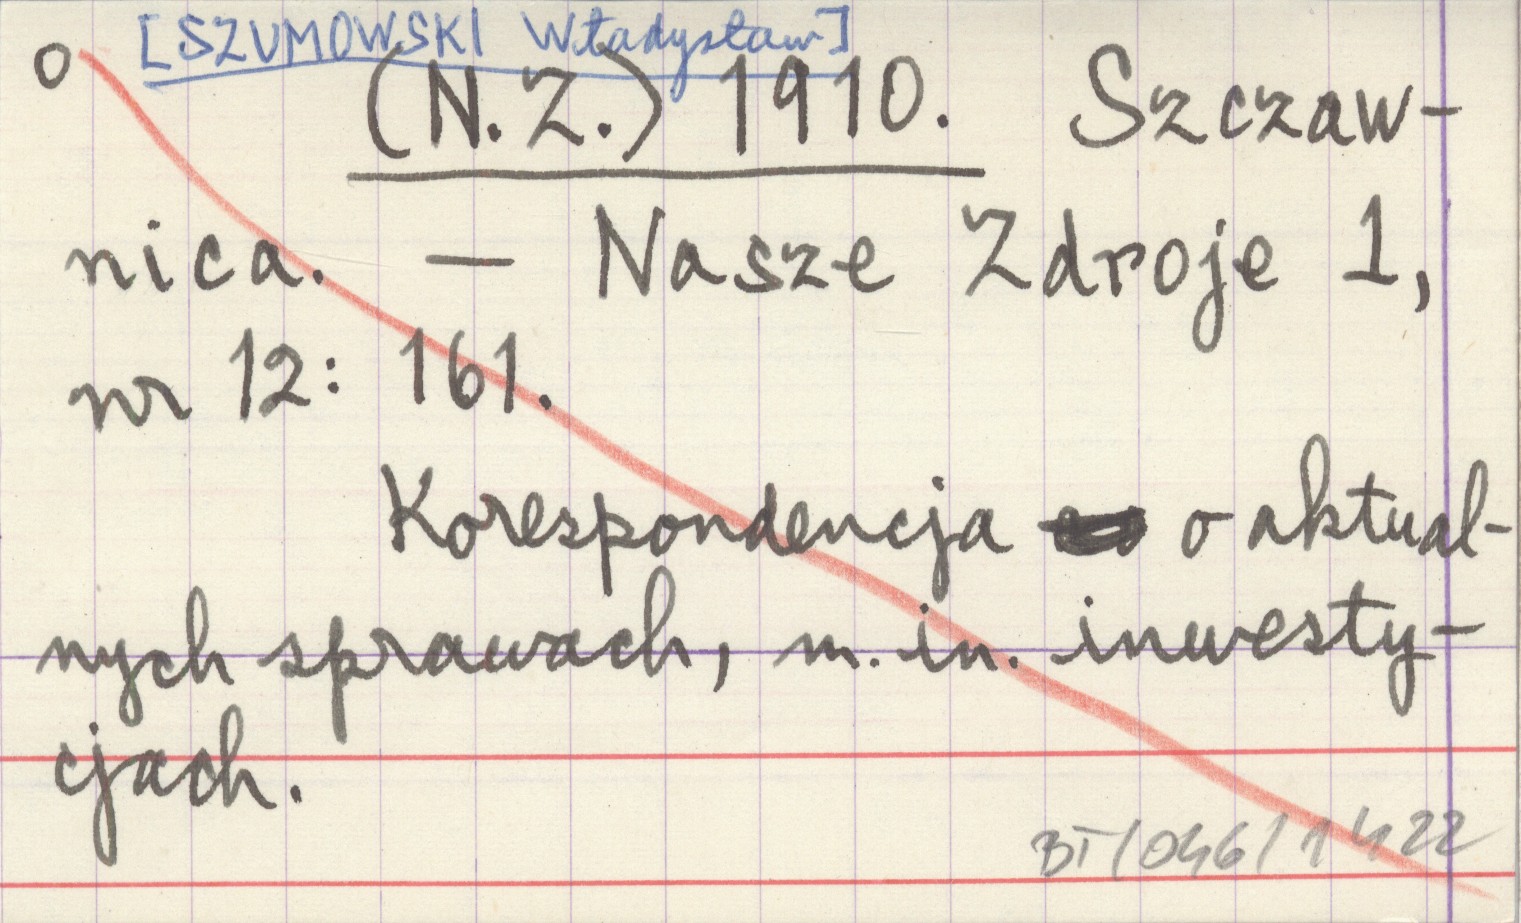 [SZUMOWSKI Władysław]
o (N.Z.) 1910. Szczaw-
nica. — Nasze Zdroje 1,
nr 12: 161.
Korespondencja o aktual-
nych sprawach, m. in. inwesty-
cjach.
BT/046/1422